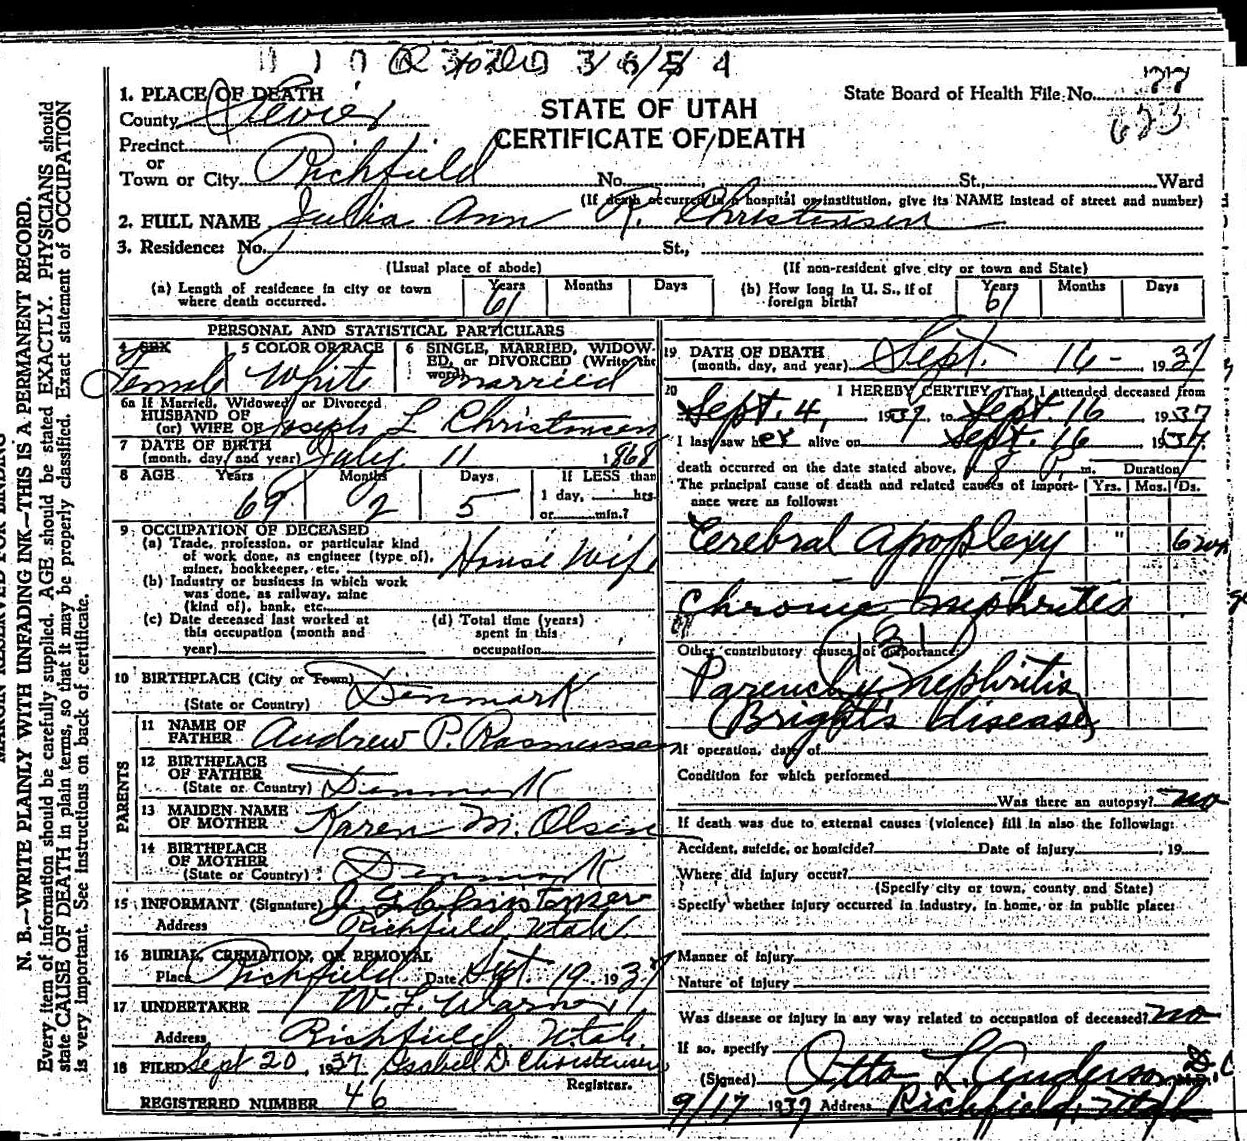 STATE OF UTAH
CERTIFICATE OF DEATH
State Board of Health File No. 77
623
1. PLACE OF DEATH
County Sevier
Precinct
or
Town or City Richfield No. St., Ward
(If death occurred in a hospital or institution, give its NAME instead of street and number)
2. FULL NAME Julia Ann R. Christensen
3. Residence: No. St.,
(Usual place of abode) (If non-resident give city or town and State)
(a) Length of residence in city or town where death occurred. Years 61 Months Days
(b) How long in U. S., if of foreign birth? Years 61 Months Days
PERSONAL AND STATISTICAL PARTICULARS
4 SEX Female
5 COLOR OR RACE White
6 SINGLE, MARRIED, WIDOWED, or DIVORCED (Write the word) married
6a If Married, Widowed, or Divorced
HUSBAND OF
(or) WIFE OF Joseph L Christensen
7 DATE OF BIRTH
(month, day, and year) July 11 1868
8 AGE Years 69 Months 2 Days 5 If LESS than
1 day, hrs.
or min.?
9 OCCUPATION OF DECEASED
(a) Trade, profession, or particular kind
of work done, as engineer (type of),
miner, bookkeeper, etc. House Wife
(b) Industry or business in which work
was done, as railway, mine
(kind of), bank, etc.
(c) Date deceased last worked at
this occupation (month and
year)
(d) Total time (years)
spent in this
occupation
10 BIRTHPLACE (City or Town)
(State or Country) Denmark
PARENTS
11 NAME OF
FATHER Andrew P. Rasmussen
12 BIRTHPLACE
OF FATHER
(State or Country) Denmark
13 MAIDEN NAME
OF MOTHER Karen M. Olsen
14 BIRTHPLACE
OF MOTHER
(State or Country) Denmark
15 INFORMANT (Signature) J L Christensen
Address Richfield, Utah
16 BURIAL, CREMATION, OR REMOVAL
Place Richfield Date Sept. 19, 1937
17 UNDERTAKER W. L. Warner
Address Richfield, Utah.
18 FILED Sept 20, 1937 Isabell D. Christensen
Registrar.
REGISTERED NUMBER 46
19 DATE OF DEATH
(month, day, and year) Sept. 16 - 1937
20 I HEREBY CERTIFY, That I attended deceased from
Sept. 4, 1937 to Sept 16 1937
I last saw her alive on Sept. 16 1937
death occurred on the date stated above, 8 P. m. Duration
The principal cause of death and related causes of importance were as follows: Yrs. Mos. Ds.
Cerebral Apoplexy
Chronic nephrites
131
Other contributory causes of importance:
Parenchy Nephritis
(Bright's disease)
If operation, date of
Condition for which performed
Was there an autopsy? no
If death was due to external causes (violence) fill in also the following:
Accident, suicide, or homicide? Date of injury , 19
Where did injury occur?
(Specify city or town, county and State)
Specify whether injury occurred in industry, in home, or in public place:
Manner of Injury
Nature of Injury
Was disease or injury in any way related to occupation of deceased? no
If so, specify
(Signed) Otto L. Anderson D. C
9/17 1937 Address Richfield, Utah
N. B.—WRITE PLAINLY WITH UNFADING INK—THIS IS A PERMANENT RECORD.
Every item of information should be carefully supplied. AGE should be stated EXACTLY. PHYSICIANS should
state CAUSE OF DEATH in plain terms, so that it may be properly classified. Exact statement of OCCUPATION
is very important. See instructions on back of certificate.